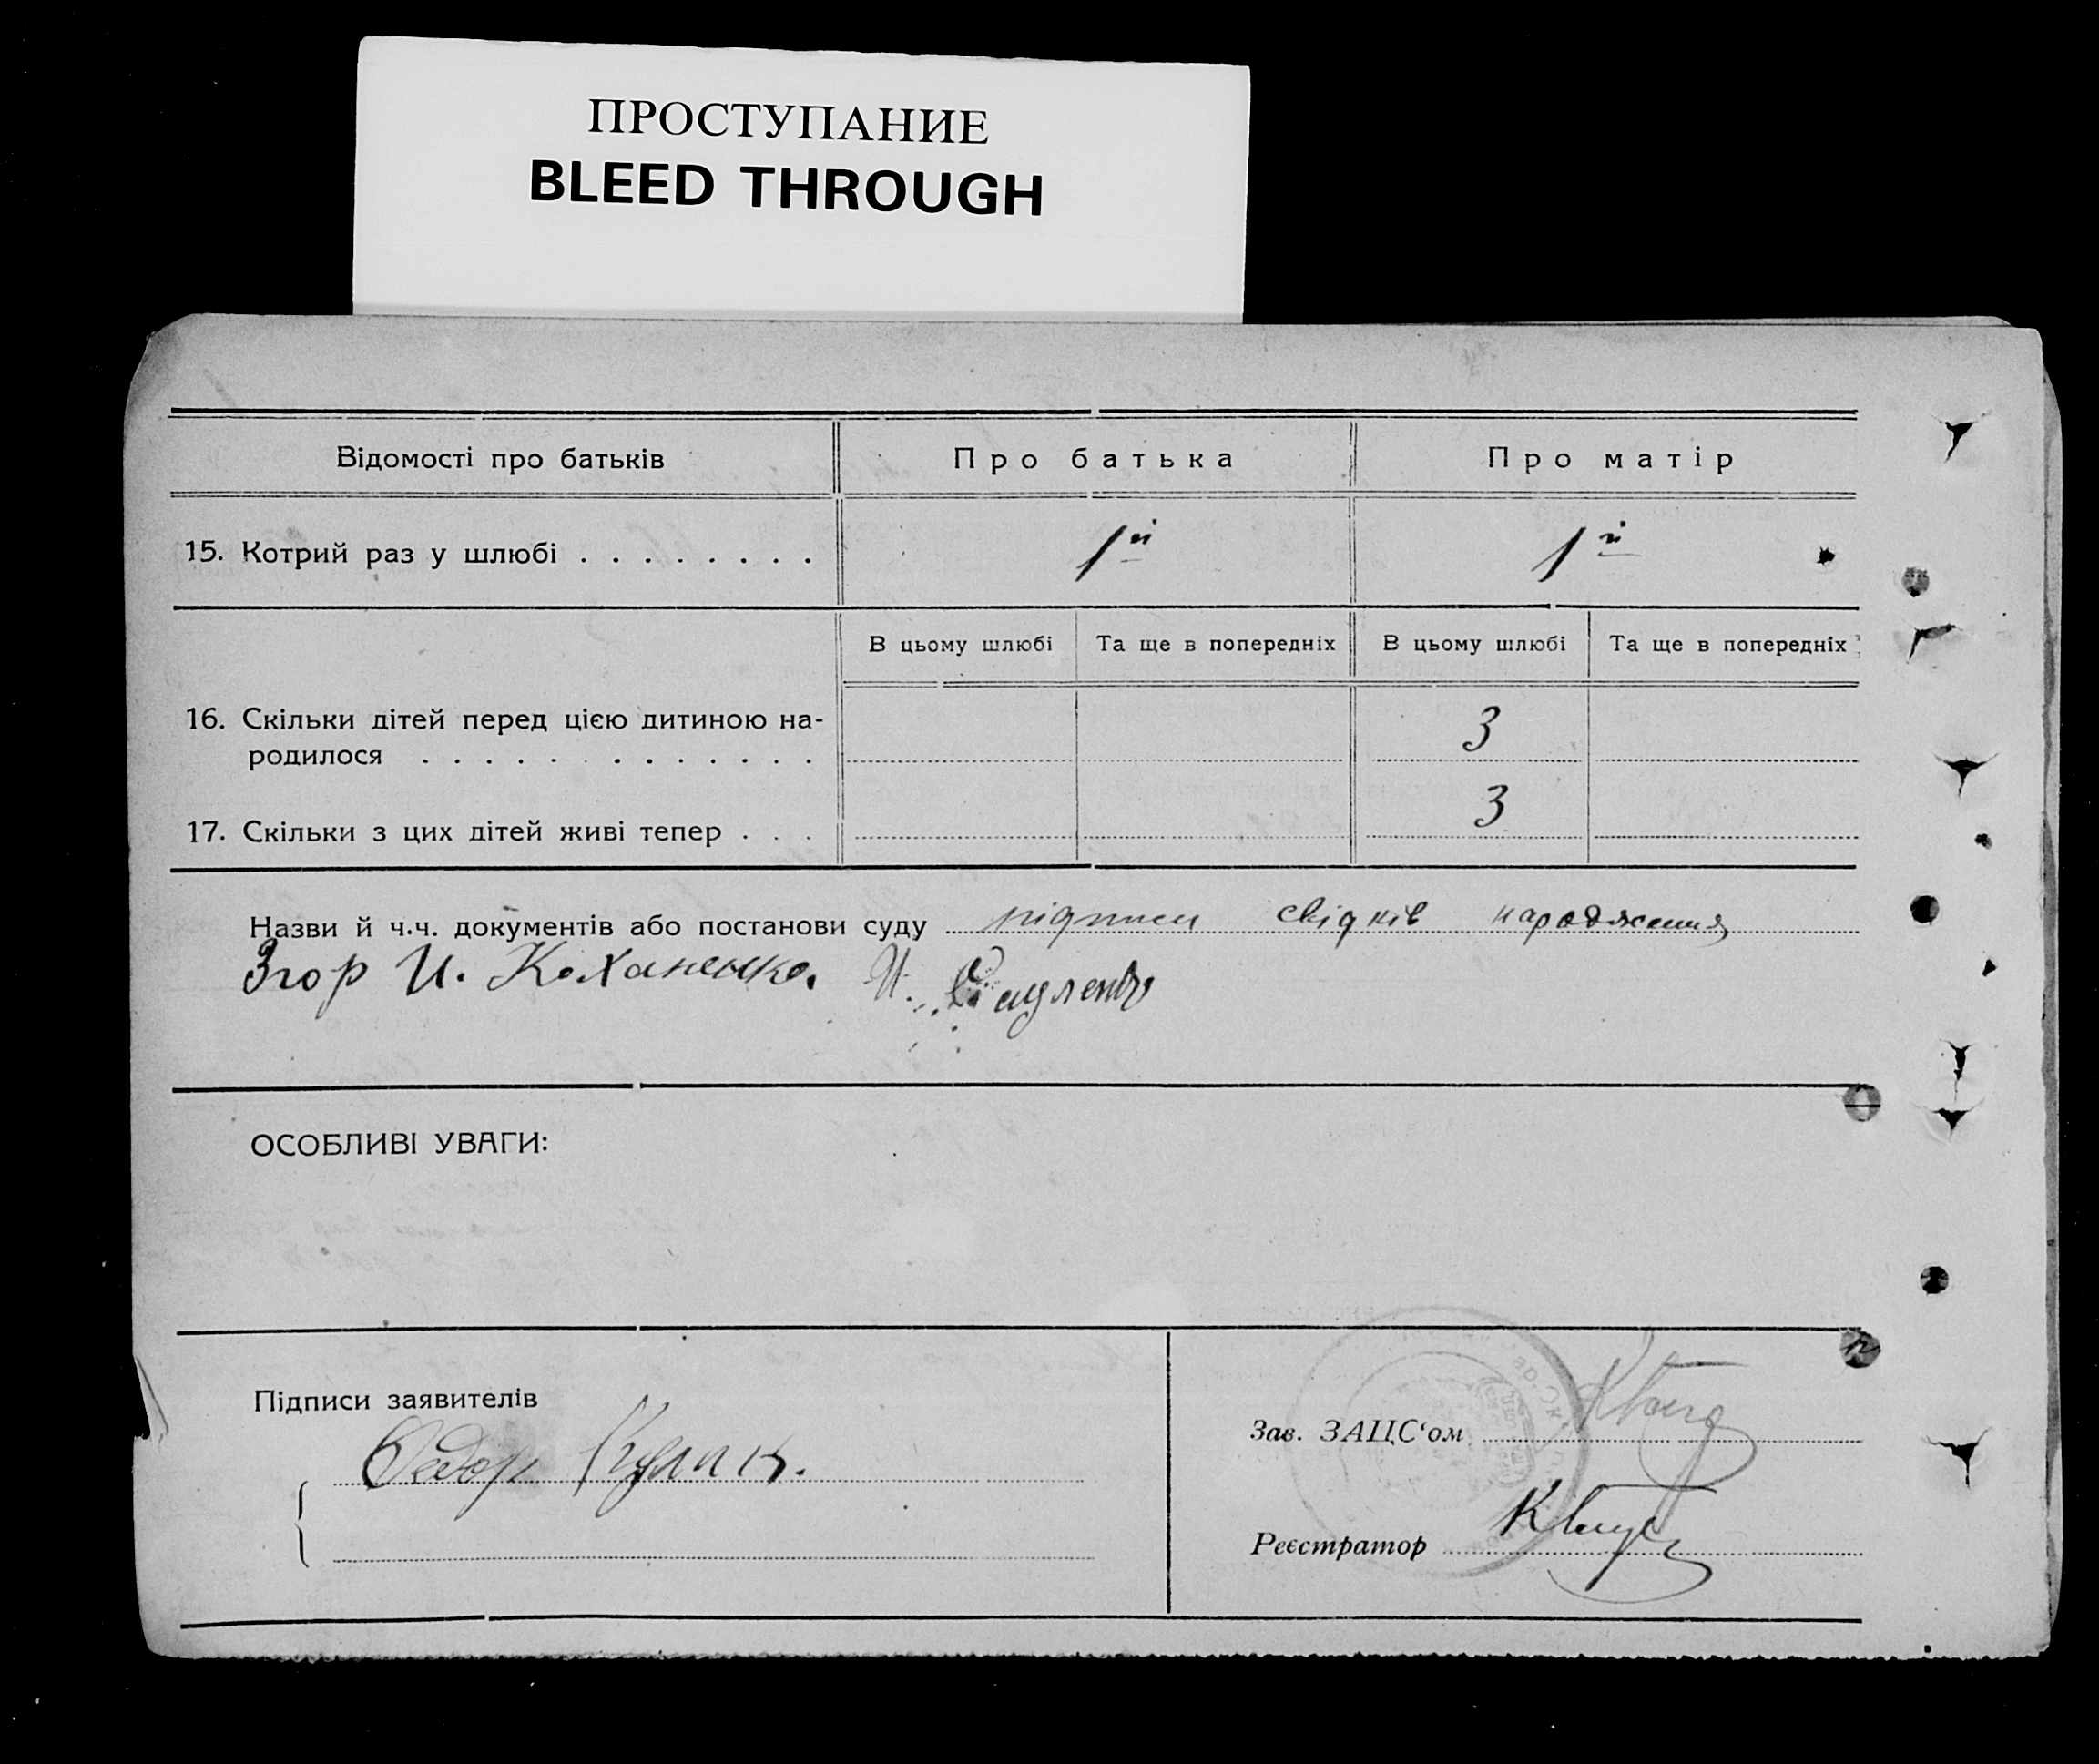 ПРОСТУПАНИЕ
BLEED THROUGH
Відомості про батьків Про батька Про матір
15. Котрий раз у шлюбі . . . . . . . . 1й 1й
В цьому шлюбі Та ще в попередніх В цьому шлюбі Та ще в попередніх
16. Скільки дітей перед цією дитиною на-
родилося . . . . . . . . . . . . . 3
17. Скільки з цих дітей живі тепер . . . 3
Назви й ч.ч. документів або постанови суду підписи свідків народження
Згор И. Коханенко. И.
ОСОБЛИВІ УВАГИ:
Підписи заявителів
Федор Кулик.
Зав. ЗАЦС‘ом
Реєстратор